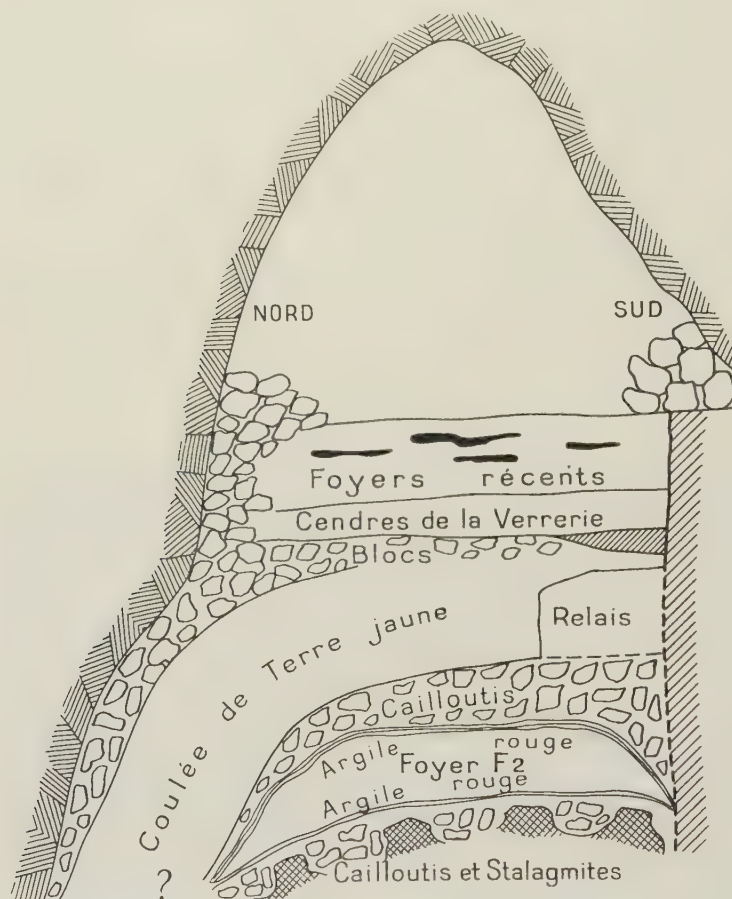 NORD
SUD
Foyers récents
Cendres de la Verrerie
Blocs
Coulée de Terre jaune
Relais
Cailloutis
Argile rouge
Foyer F2
Argile rouge
?
Cailloutis et Stalagmites